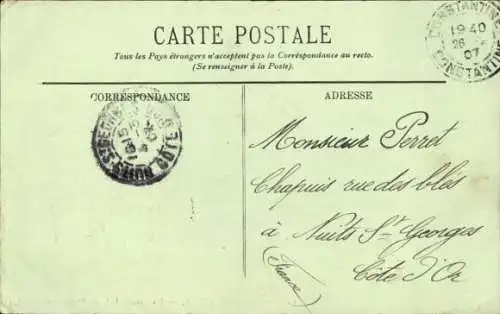 CARTE POSTALE
Tous les Pays étrangers n'acceptent pas la Correspondance au recto.
(Se renseigner à la Poste).
CORRESPONDANCE
ADRESSE
CONSTANTINE
19 40
26
07
CONSTANTINE
CÔTE D'
Monsieur Perret
Chapuis rue des blés
à Nuits St Georges
(France)
Côte d'Or